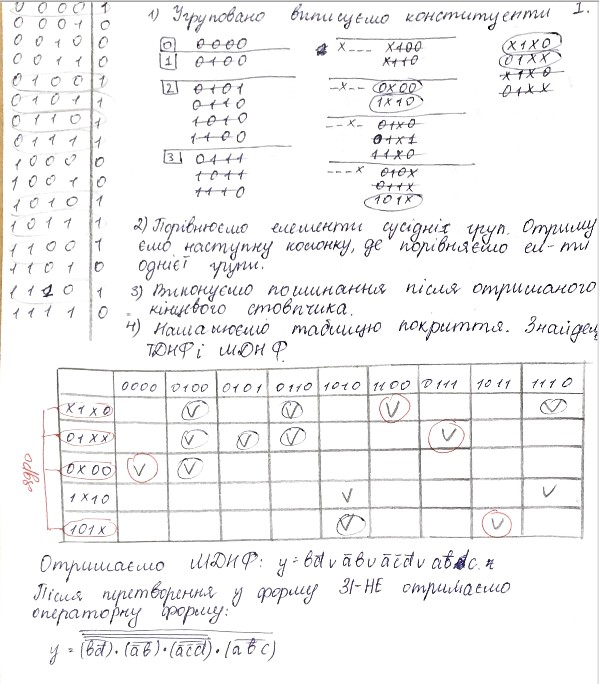 0 0 0 0 1
0 0 0 1 0
0 0 1 0 0
0 0 1 1 0
0 1 0 0 1
0 1 0 1 1
0 1 1 0 1
0 1 1 1 1
1 0 0 0 0
1 0 0 1 0
1 0 1 0 1
1 0 1 1 1
1 1 0 0 1
1 1 0 1 0
1 1 1 0 1
1 1 1 1 0
1) Угруповано виписуємо конституенти 1.
0 0000
1 0100
2 0101
0110
1010
1100
3 0111
1011
1110
x--- x100
x110
-x-- 0x00
1x10
--x- 01x0
01x1
11x0
---x 010x
011x
101x
x1x0
01xx
x1x0
01xx
2) Порівнюємо елементи сусідніх груп. Отриму
ємо наступну колонку, де порівняємо ел-ти
однієї групи.
3) Виконуємо поглинання після отриманого
кінцевого стовпчика.
4) Намалюємо таблицю покриття. Знайдем
ТДНФ і МДНФ.
0000 0100 0101 0110 1010 1100 0111 1011 1110
x1x0 V V V V
01xx V V V V
0x00 V V
1x10 V V
101x V V
ядро
Отримаємо МДНФ: y = bd̅ v a̅b v a̅c̅d̅ v ab̅c.
Після перетворення у форму ЗІ-НЕ отримаємо
операторну форму:
y = (bd̅)·(a̅b)·(a̅c̅d̅)·(ab̅c)